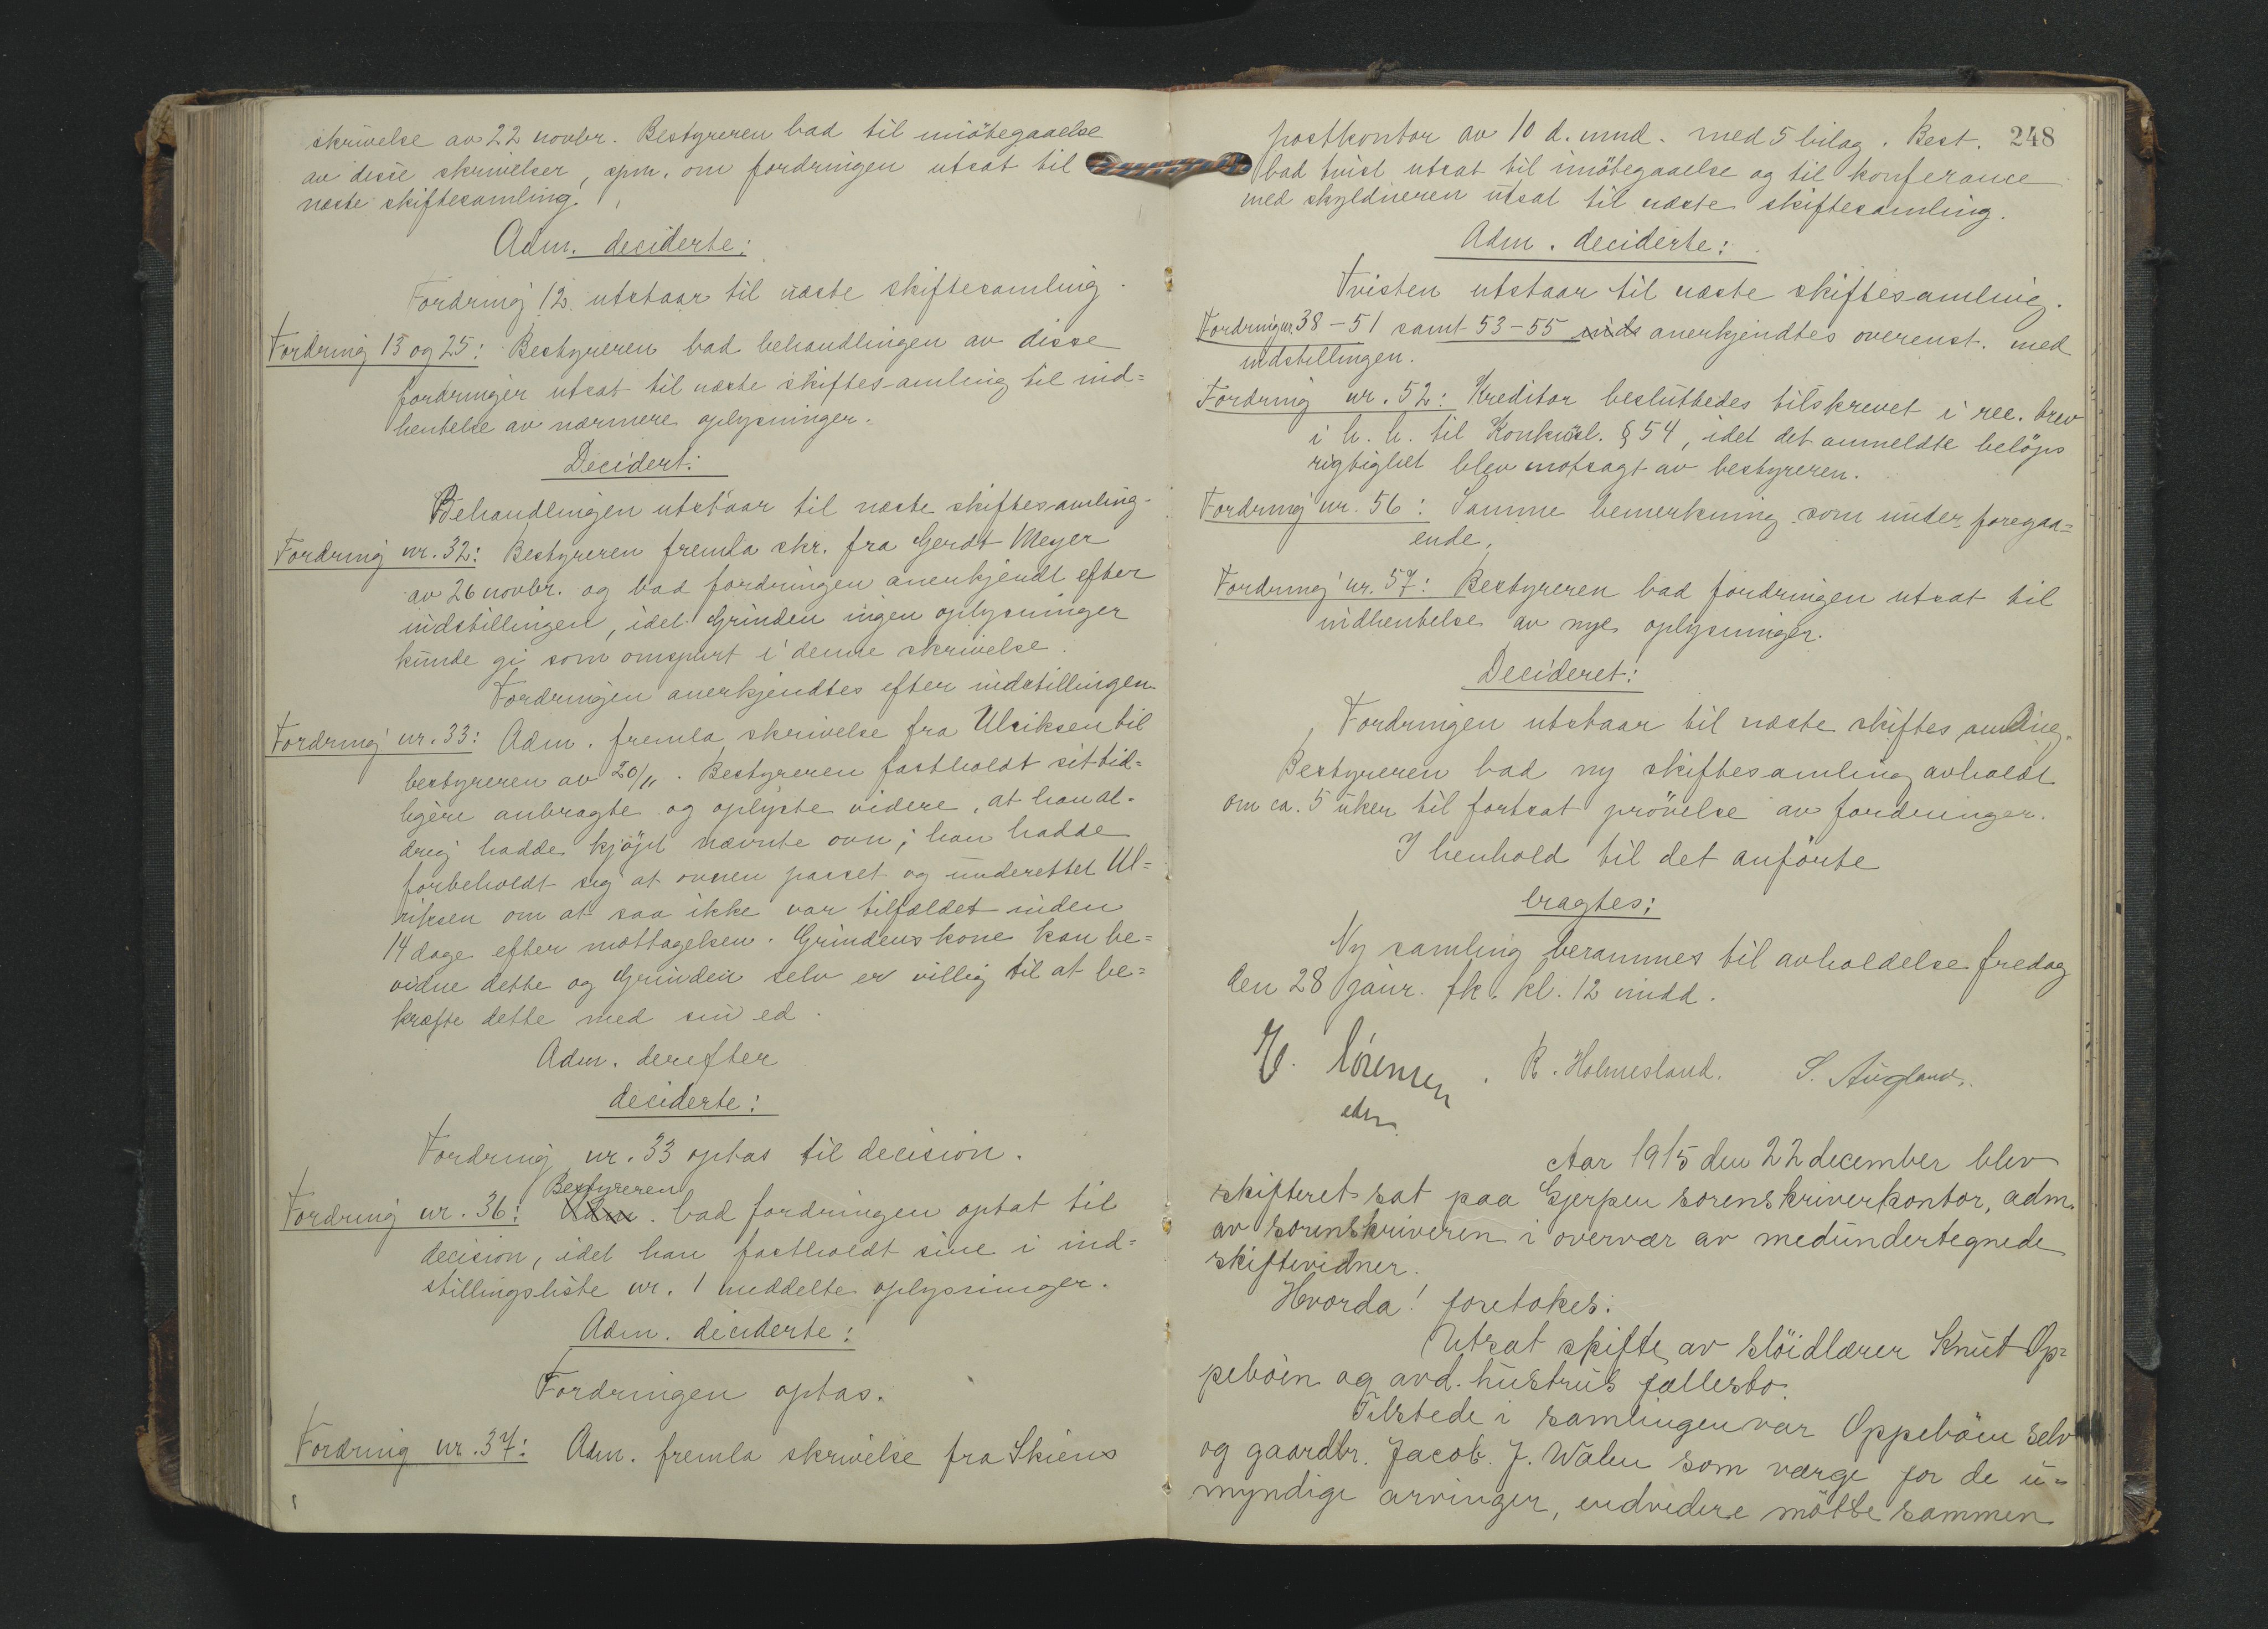 skrivelse av 22 novbr. Bestyreren bad til imötegaaelse
av disse skrivelser, spm. om fordringen utsat til
næste skiftesamling.
Adm. deciderte:
Fordring 12 utstaar til næste skiftesamling.
Fordring 13 og 25: Bestyreren bad behandlingen av disse
fordringer utsat til næste skiftesamling til ind=
hentelse av nærmere oplysninger.
Decidert:
Behandlingen utstaar til næste skiftesamling.
Fordring nr. 32: Bestyreren fremla skr. fra Gerdt Meyer
av 26 novbr. og bad fordringen anerkjendt efter
indstillingen, idet Grinden ingen oplysninger
kunde gi som omspurt i denne skrivelse.
Fordringen anerkjendtes efter indstillingen.
Fordring nr. 33: Adm. fremla skrivelse fra Ulriksen til
bestyreren av 20/11. Bestyreren fastholdt sit tid=
ligere anbragte og oplyste videre, at han al=
drig hadde kjøpt nævnte ovn; han hadde
forbeholdt sig at ovnen passet og underettet Ul=
riksen om at saa ikke var tilfældet inden
14 dage efter mottagelsen. Grindens kone kan be=
vidne dette og Grinden selv er villig til at be=
kræfte dette med sin ed.
Adm. derefter
deciderte:
Fordring nr. 33 optas til decision.
Bestyreren
Fordring nr. 36: Adm. bad fordringen optat til
decision, idet han fastholdt sine i ind=
stillingsliste nr. 1 meddelte oplysninger.
Adm. deciderte:
Fordringen optas.
Fordring nr. 37: Adm. fremla skrivelse fra Skiens
248
postkontor av 10 d. mnd. med 5 bilag. Best.
bad tvist utsat til imötegaaelse og til konferance
med skyldneren utsat til næste skiftesamling.
Adm. deciderte:
Tvisten utstaar til næste skiftesamling.
Fordringer 38-51 samt 53-55 inds anerkjendtes overenst. med
indstillingen.
Fordring nr. 52: Kreditor besluttedes tilskrevet i rec. brev
i h. h. til Konkursl. § 54, idet det anmeldte beløps
rigtighet blev motsagt av bestyreren.
Fordring nr. 56: Samme bemerkning som under foregaa=
ende.
Fordring nr. 57: Bestyreren bad fordringen utsat til
indhentelse av nye oplysninger.
Decideret:
Fordringen utstaar til næste skiftesamling.
Bestyreren bad ny skiftesamling avholdt
om ca. 5 uker til fortsat prövelse av fordringer.
I henhold til det anförte
bragtes:
Ny samling berammes til avholdelse fredag
den 28 janr. fk. kl. 12 midd.
Sörensen. R. Holmesland. S. Augland.
Aar 1915 den 22 december blev
skifteret sat paa Gjerpen sorenskriverkontor, adm.
av sorenskriveren i overvær av medundertegnede
skiftevidner.
Hvorda! foretokes:
Utsat skifte av slöidlærer Knut Op=
peböen og avd. hustrus fællesbo.
Tilstede i samlingen var Oppeböen selv
og gaardbr. Jacob. J. Walen som værge for de u=
myndige arvinger, endvidere mötte sammen